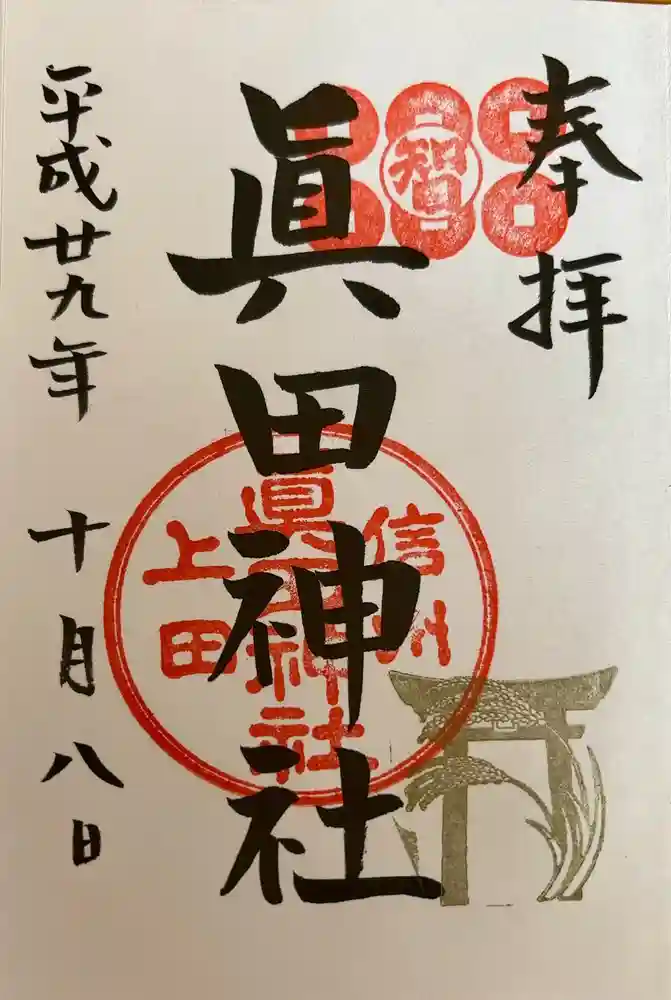 奉拝
智
眞田神社
信州
眞田神社
上田
平成廿九年
十月八日